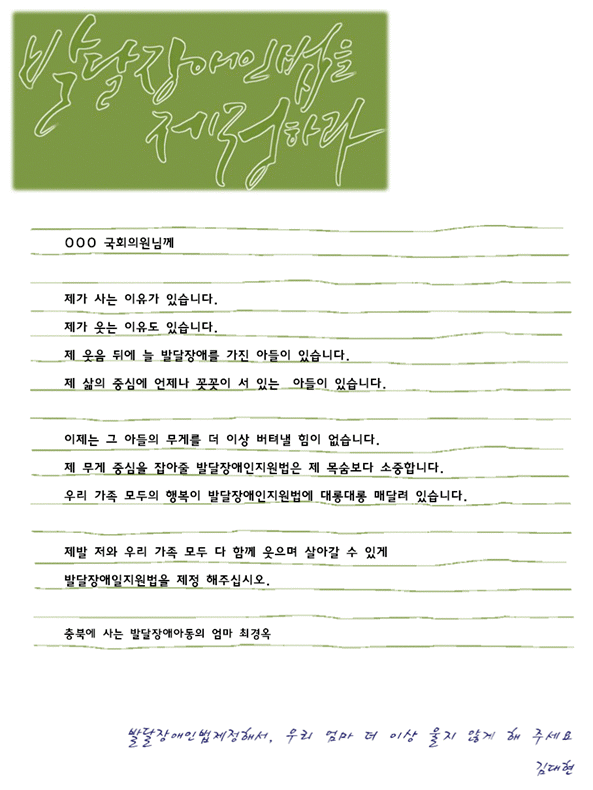 발달장애인법을
제정하라
OOO 국회의원님께
제가 사는 이유가 있습니다.
제가 웃는 이유도 있습니다.
제 웃음 뒤에 늘 발달장애를 가진 아들이 있습니다.
제 삶의 중심에 언제나 꼿꼿이 서 있는 아들이 있습니다.
이제는 그 아들의 무게를 더 이상 버텨낼 힘이 없습니다.
제 무게 중심을 잡아줄 발달장애인지원법은 제 목숨보다 소중합니다.
우리 가족 모두의 행복이 발달장애인지원법에 대롱대롱 매달려 있습니다.
제발 저와 우리 가족 모두 다 함께 웃으며 살아갈 수 있게
발달장애일지원법을 제정 해주십시오.
충북에 사는 발달장애아동의 엄마 최경옥
발달장애인법제정해서, 우리 엄마 더 이상 울지 않게 해 주세요
김대현